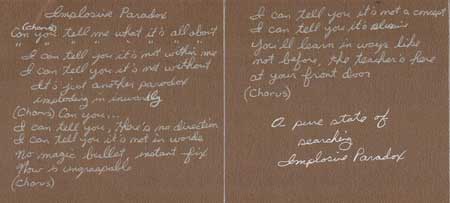 Implosive Paradox
(Chorus)
Can you tell me what it's all about
" " " " " " "
I can tell you it's not within me
I can tell you it's not without
It's just another paradox
imploding in inwardly
(Chorus) Can you...
I can tell you, there's no direction
I can tell you it's not in words
No magic bullet, instant fix
Now is ungraspable
(Chorus)
I can tell you it's not a concept
I can tell you it's
You'll learn in ways like
not before, the teacher's here
at your front door
(Chorus)
A pure state of
searching
Implosive Paradox